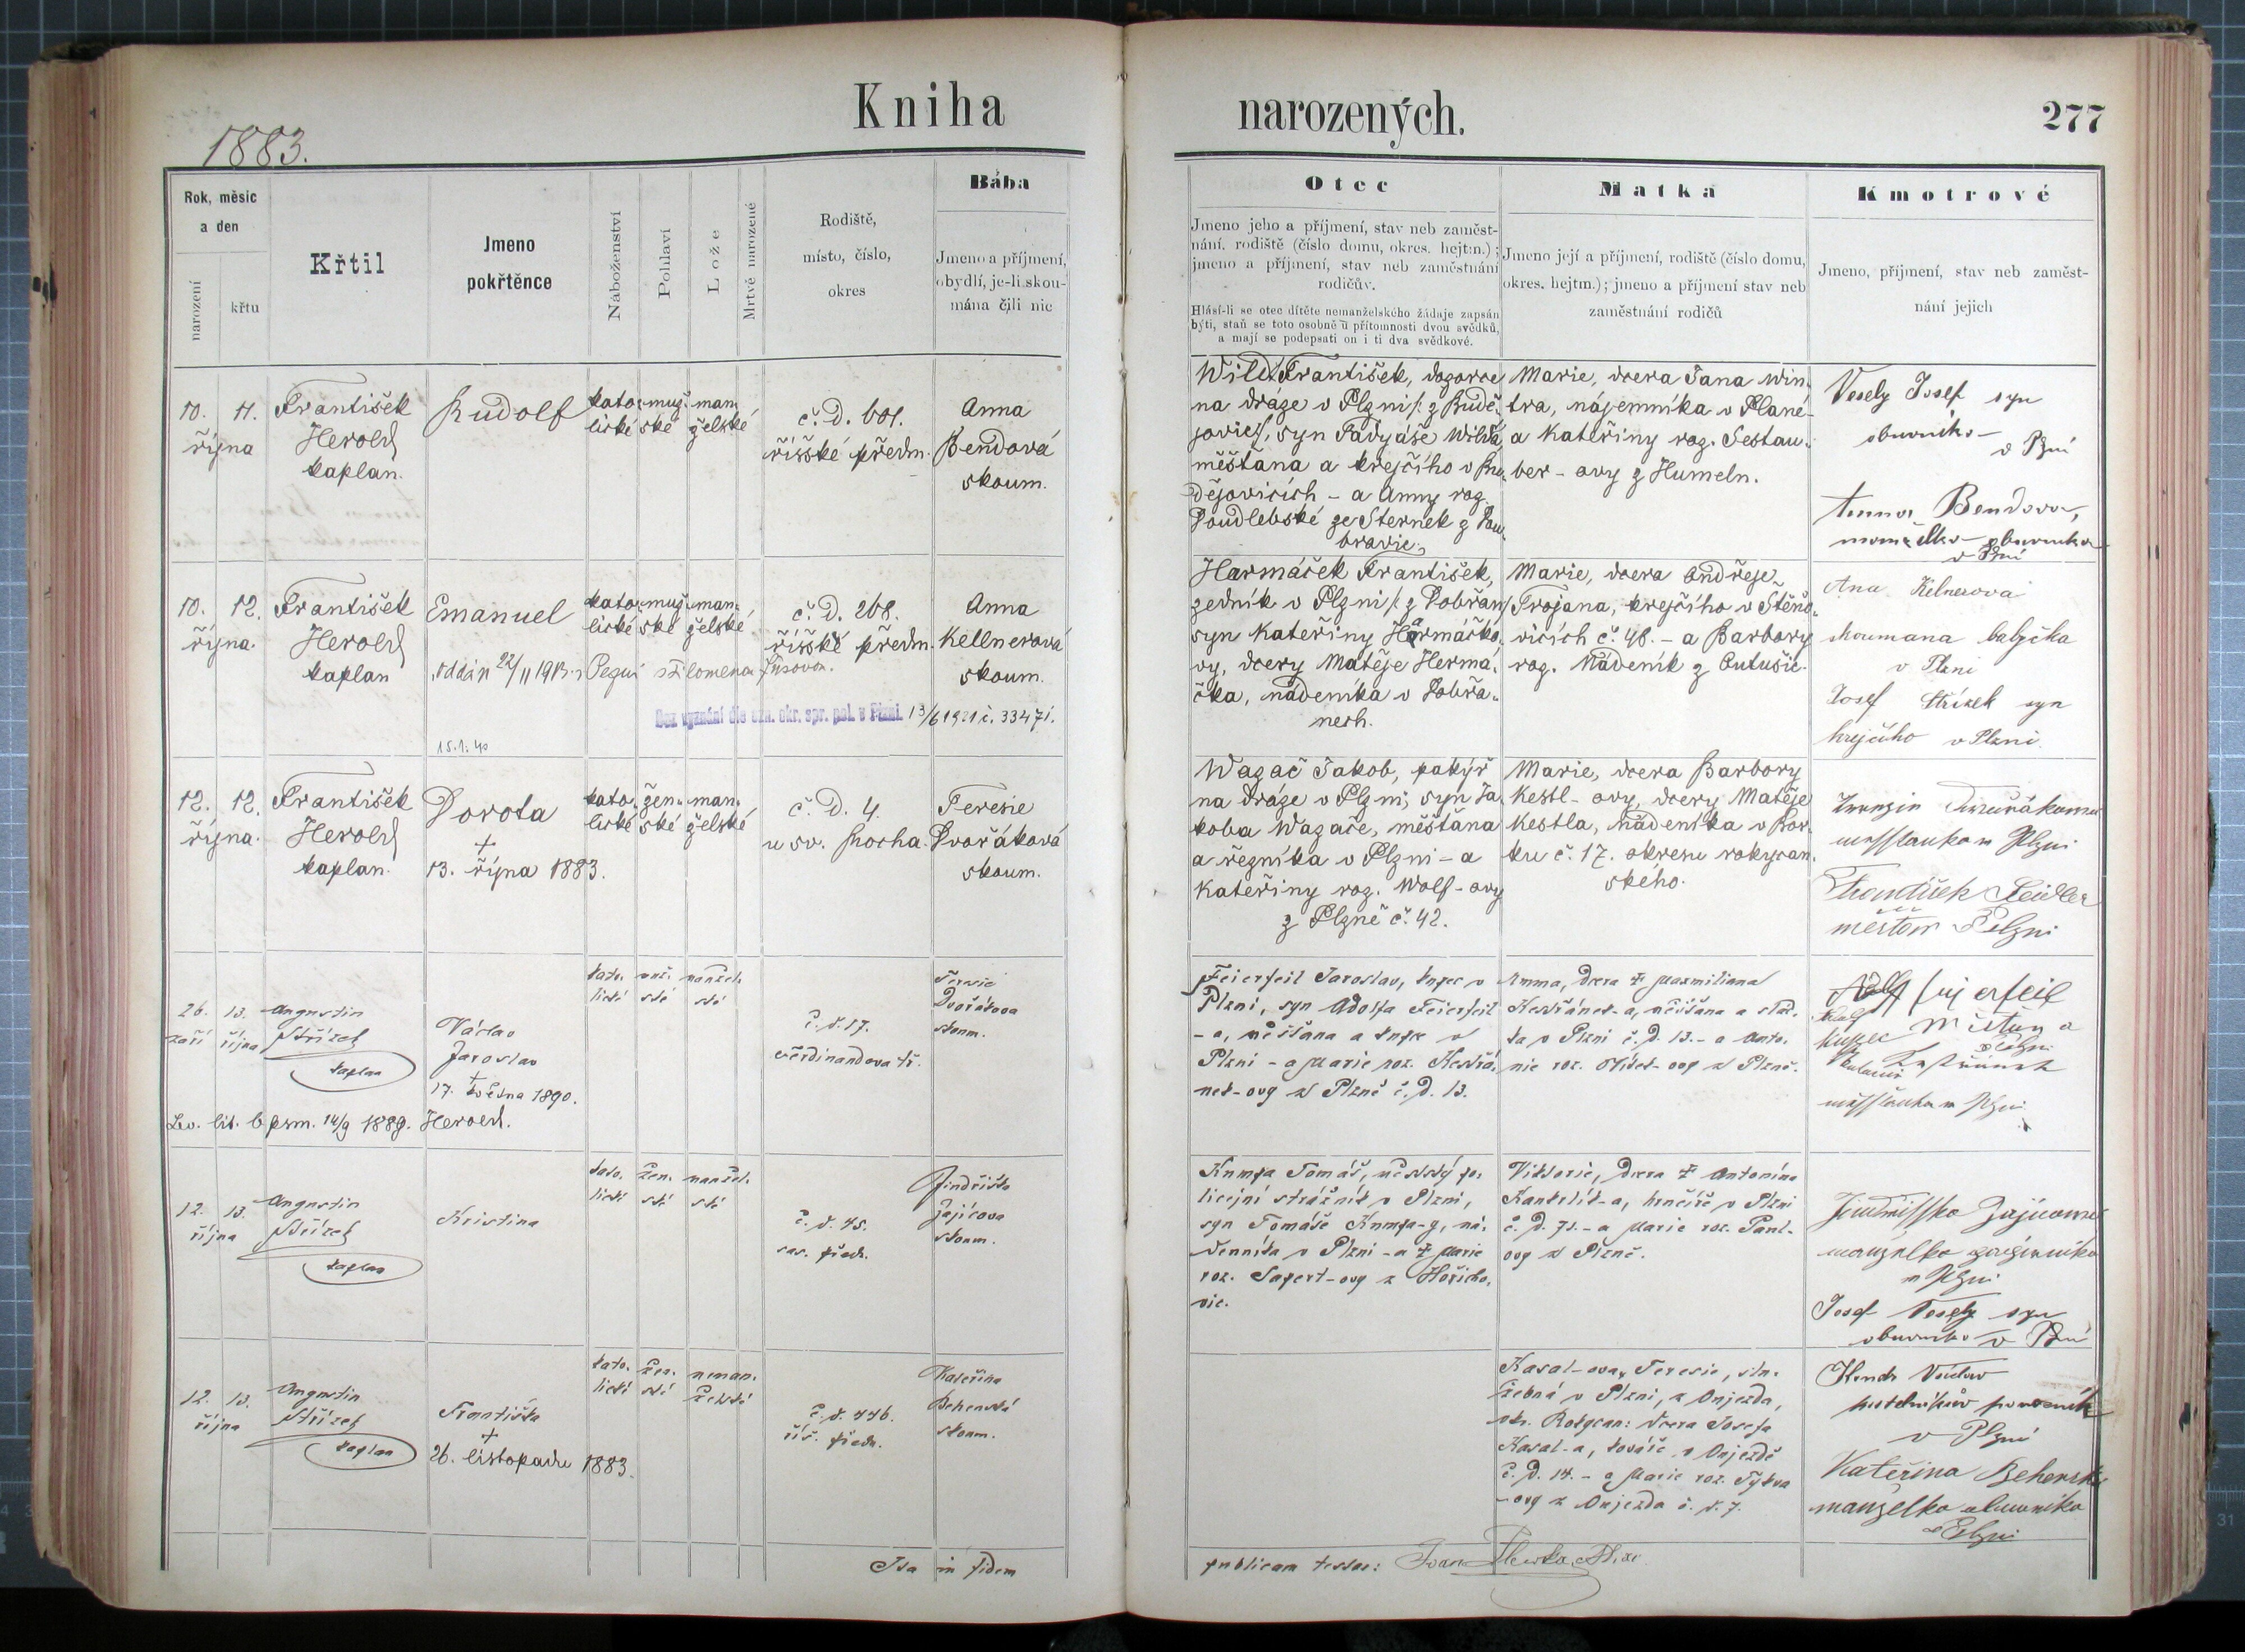 Kniha
narozených.
277
1883.
Rok, měsíc
a den
narození
křtu
Křtil
Jmeno
pokřtěnce
Náboženství
Pohlaví
Lože
Mrtvě narozené
Rodiště,
místo, číslo,
okres
Bába
Jmeno a příjmení,
obydlí, je-li skou-
mána čili nic
Otec
Jmeno jeho a příjmení, stav neb zaměst-
nání, rodiště (číslo domu, okres. hejtm.);
jmeno a příjmení, stav neb zaměstnání
rodičův.
Hlásí-li se otec dítěte nemanželského žádaje zapsán
býti, staň se toto osobně u přítomnosti dvou svědků,
a mají se podepsati on i ti dva svědkové.
Matka
Jmeno její a příjmení, rodiště (číslo domu,
okres. hejtm.); jmeno a příjmení stav neb
zaměstnání rodičů
Kmotrové
Jmeno, příjmení, stav neb zaměst-
nání jejich
10. 11.
října
František
Herold
kaplan.
Rudolf
kato-
lické
muž-
ské
man-
želské
č. D. 601.
říšské předm.
Anna
Bendová
skoum.
Wild František,
na dráze v Plzni /: z Budě-
jovic /, syn Wilda,
měšťana a krejčího v Bu-
dějovicích - a Anny roz.
Doudlebské ze Sternek z Dou-
bravic.
Marie, dcera Jana Win-
tra, nájemníka v Plané
a Kateřiny roz. Sestau-
ber-ovy z Humeln.
Veselý Josef syn
obuvníka
v Plzni
Anna Bendova,
manželka obuvníka
v Plzni
10. 12.
října.
František
Herold
kaplan
Emanuel
oddán 22/11 1913
15.1.40
kato-
lické
muž-
ské
man-
želské
č. D. 268.
říšské předm.
Anna
Kellnerová
skoum.
Bez vyznání dle ozn. okr. spr. pol. v Plzni. 13/6 1921 č. 33471.
Harmáček František,
zedník v Plzni /: z Dobřan /
syn Kateřiny Harmáčko-
vy, dcery Matěje Hermá-
čka, nádeníka v Dobřa-
nech.
Marie, dcera Ondřeje
Trojana, krejčího v Štěno-
vicích č. 48. - a Barbory
roz. Nádeník z Outušic.
Ana Kelnerová
skoumana babyčka
v Plzni
Josef Střízek syn
krejčího v Plzni.
12. 12.
října.
František
Herold
kaplan.
Dorota
+
13. října 1883.
kato-
lické
žen-
ské
man-
želské
č. D. 4.
u sv. Rocha.
Teresie
Dvořáková
skoum.
Wazač Jakob, pakýř
na dráze v Plzni, syn Ja-
koba Wazače, měšťana
a řezníka v Plzni - a
Kateřiny roz. Wolf-ovy
z Plzně č. 42.
Marie, dcera Barbory
Kestl-ovy, dcery Matěje
Kestla, nádeníka v Bor-
ku č. 17. okresu rokycan-
ského.
František Seidler
měšťan v Plzni
26. 13.
září října
Augustin
Střízek
kaplan
Václav
Jaroslav
+
17. května 1890.
Lev. lit. b psm. 14/9 1889. Herold.
kato-
lické
muž-
ské
manžel-
ské
č. d. 17.
Ferdinandova tř.
Teresie
Dvořákova
skoum.
Feierfeil Jaroslav, kupec v
Plzni, syn Adolfa Feierfeil
-a, měšťana a kupce v
Plzni - a Marie roz. Kestřá-
nek-ovy z Plzně č. D. 13.
Anna, dcera + Maxmiliana
Kestřánek-a, měšťana a slád-
ka v Plzni č. D. 13. - a Anto-
nie roz. -ovy z Plzně.
Adolf Fejerfeil
kupec Mištan a
v Plzni
12. 13.
října
Augustin
Střízek
kaplan
Kristina
kato-
lické
žen-
ské
manžel-
ské
č. d. 45.
sas. předm.
Jindřiška
Zajícova
skoum.
Knmfa Tomáš, městský po-
licejní strážník v Plzni,
syn Tomáše Knmfa-y, ná-
denníka v Plzni - a + Marie
roz. Sapert-ovy z Hořicho-
vic.
Viktorie, dcera + Antonína
Kankelík-a, hrnčíře v Plzni
č. D. 71. - a Marie roz. Pankl-
ovy z Plzně.
manželka
v Plzni
Josef Veselý syn
obuvníka v Plzni
12. 13.
října
Augustin
Střízek
kaplan
Františka
+
26. listopadu 1883.
kato-
lické
žen-
ské
neman-
želské
č. d. 446.
říš. předm.
Kateřina
Behenská
skoum.
Kasal-ova, Teresie, slu-
žebná v Plzni, z Onjezda,
okr. Rokycan: dcera Josefa
Kasal-a, kováře v Onjezdě
č. D. 14. - a Marie roz. Tykva
-ovy z Onjezda č. d. 7.
Václav
v Plzni
Kateřina Behenská
manželka obuvníka
v Plzni
Ita in fidem
publicam testor: